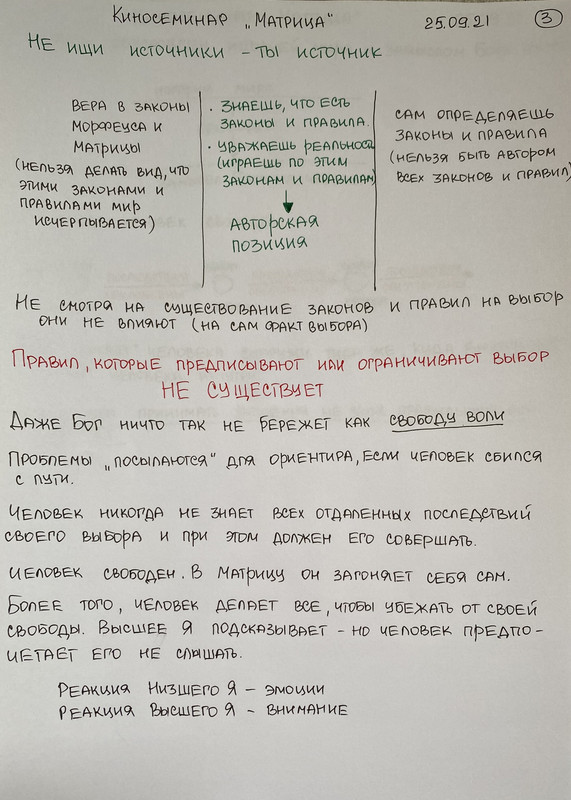 Киносеминар „Матрица"
25.09.21
3
Не ищи источники – ты источник
Вера в законы
Морфеуса и
Матрицы
(нельзя делать вид, что
этими законами и
правилами мир
исчерпывается)
• Знаешь, что есть
законы и правила.
• Уважаешь реальность
(играешь по этим
законам и правилам)
Авторская
позиция
Сам определяешь
законы и правила
(нельзя быть автором
всех законов и правил)
Не смотря на существование законов и правил на выбор
они не влияют (на сам факт выбора)
Правил, которые предписывают или ограничивают выбор
не существует
Даже Бог ничто так не бережет как свободу воли
Проблемы „посылаются" для ориентира, если человек сбился
с пути.
Человек никогда не знает всех отдаленных последствий
своего выбора и при этом должен его совершать.
Человек свободен. В Матрицу он загоняет себя сам.
Более того, человек делает все, чтобы убежать от своей
свободы. Высшее Я подсказывает – но человек предпо-
читает его не слышать.
Реакция Низшего Я – эмоции
Реакция Высшего Я – внимание